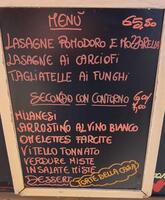 MENÙ
LASAGNE POMODORO E MOZZARELLA
LASAGNE AI CARCIOFI
TAGLIATELLE AI FUNGHI
SECONDO CON CONTORNO
MILANESI
ARROSTINO AL VINO BIANCO
OMELETTES FARCITE
VITELLO TONNATO
VERDURE MISTE
INSALATE MISTE
DESSERT TORTE DELLA CASA